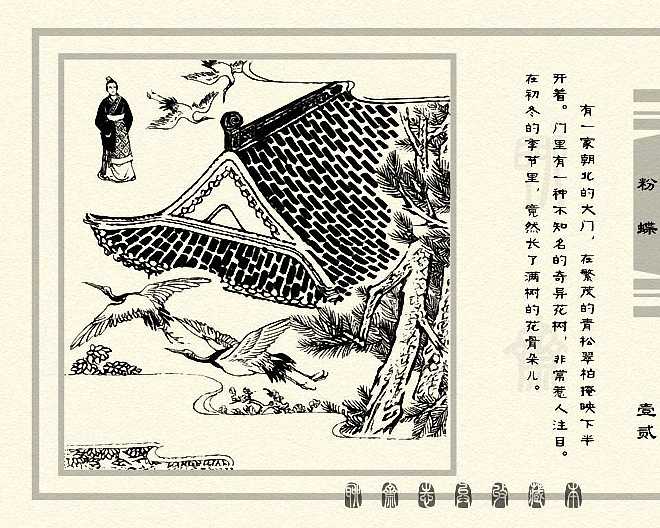 有一家朝北的大门，在繁茂的青松翠柏掩映下半
开着。门里有一种不知名的奇异花树，非常惹人注目。
在初冬的季节里，竟然长了满树的花骨朵儿。
粉蝶
壹贰